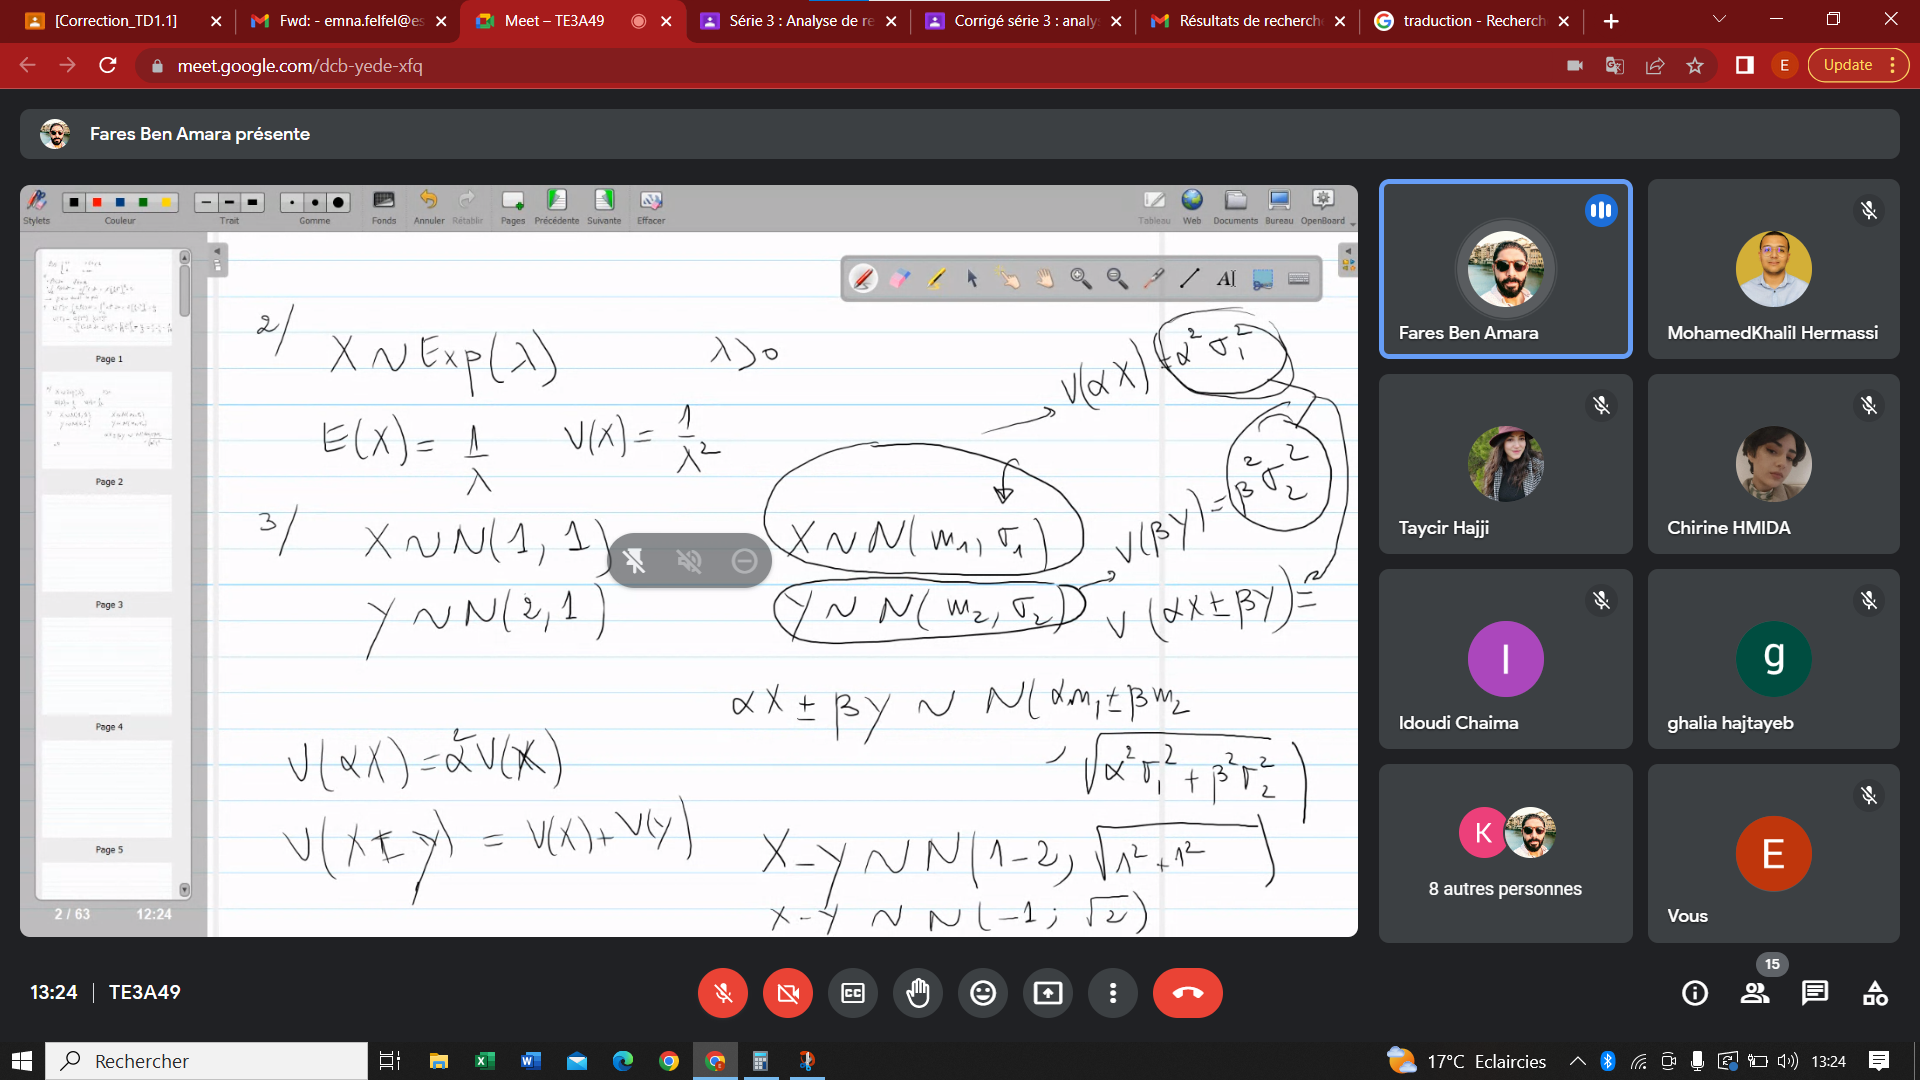 [Correction_TD1.1]
Fwd: - emna.felfel@es
Meet – TE3A49
Série 3 : Analyse de re
Corrigé série 3 : analys
Résultats de recherch
traduction - Recherch
meet.google.com/dcb-yede-xfq
E
Update
Fares Ben Amara présente
Stylets
Couleur
Trait
Gomme
Fonds
Annuler
Rétablir
Pages
Précédente
Suivante
Effacer
Tableau
Web
Documents
Bureau
OpenBoard
Page 1
Page 2
Page 3
Page 4
Page 5
2 / 63 12:24
2/ X ~ Exp(λ) λ>0
V(αX) = α²σ₁²
E(X) = 1/λ V(X) = 1/λ²
V(βY) = β²σ₂²
3/ X ~ N(1, 1) X ~ N(m₁, σ₁)
Y ~ N(2, 1) Y ~ N(m₂, σ₂) V(αX ± βY) =
αX ± βY ~ N(αm₁ ± βm₂
V(αX) = α²V(X) , √α²σ₁² + β²σ₂² )
V(X ± Y) = V(X) + V(Y) X-Y ~ N(1-2; √1²+1²)
X-Y ~ N(-1; √2)
Fares Ben Amara
MohamedKhalil Hermassi
Taycir Hajji
Chirine HMIDA
I
Idoudi Chaima
g
ghalia hajtayeb
K
8 autres personnes
E
Vous
13:24 | TE3A49
CC
15
Rechercher
17°C Eclaircies
13:24